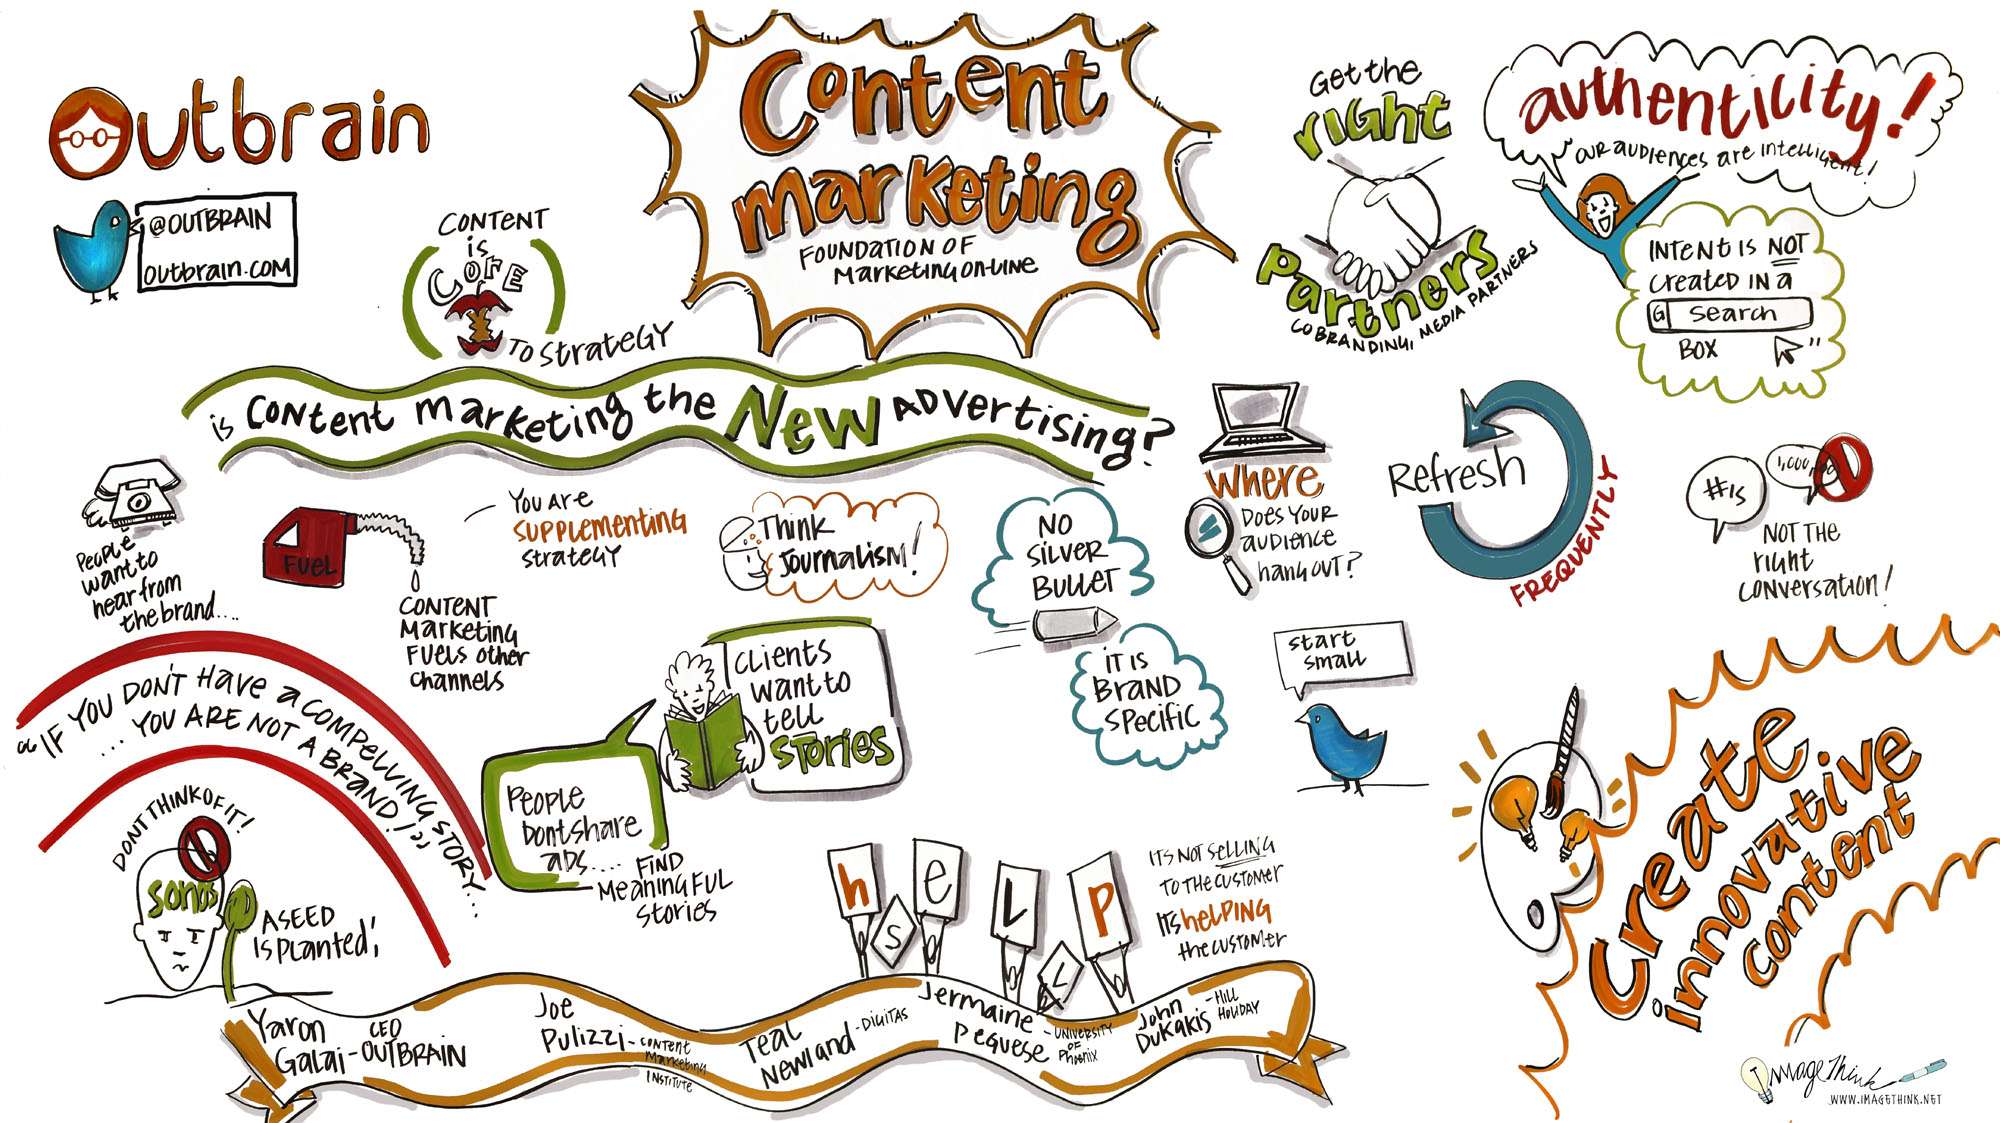 Outbrain
@OUTBRAIN
Outbrain.com
CONTENT
is
Core
TO STRATEGY
Content
marketing
FOUNDATION OF
Marketing on-line
Get the
right
Partners
CO BRANDING, MEDIA PARTNERS
authenticity!
OUR AUDIENCES are intelligent!
INTENT IS NOT
created IN a
G search
BOX "
is CONtent marketing the New ADvertising?
People
want to
hear from
the brand....
FUEL
CONTENT
Marketing
FUELS other
channels
YOU ARE
SUPPLEMENTING
strateGY
Think
Journalism!
NO
SILVER
BULLET
IT IS
BRAND
specific
Where
DOES YOUR
audience
hang OUT?
Refresh
FREQUENTLY
#IS
NOT THE
right
conversation!
start
small
"IF YOU DON'T HAVE a COMPELLING STORY...
... YOU ARE NOT A BRAND!"
DON'T THINK OF IT!
SONGS
A SEED
IS PLANTED!
CLIENTS
want to
tell
STORIES
PEOPLE
DON'T SHARE
ADS....
FIND
MeaninGFUL
stories
h e L P
S L
IT'S NOT SELLING
TO THE CUSTOMER
IT'S HELPING
the CUSTOMER
Create
innovative
content
Yaron
Galai - CEO
OUTBRAIN
Joe
Pulizzi - CONTENT
Marketing
INSTITUTE
Teal
Newland - DIGITAS
Jermaine
Peguese - UNIVERSITY
OF
Phoenix
John
Dukakis - HILL
HOLIDAY
ImageThink
WWW.IMAGETHINK.NET